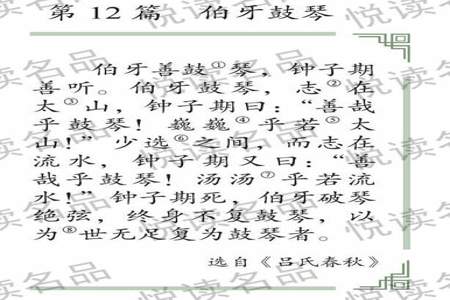 第12篇 伯牙鼓琴
伯牙善鼓①琴，钟子期
善听。伯牙鼓琴，志②在
太③山，钟子期曰：“善哉
乎鼓琴！巍巍④乎若⑤太
山！”少选⑥之间，而志在
流水，钟子期又曰：“善
哉乎鼓琴！汤汤⑦乎若流
水！”钟子期死，伯牙破琴
绝弦，终身不复鼓琴，以
为⑧世无足复为鼓琴者。
选自《吕氏春秋》
悦读名品